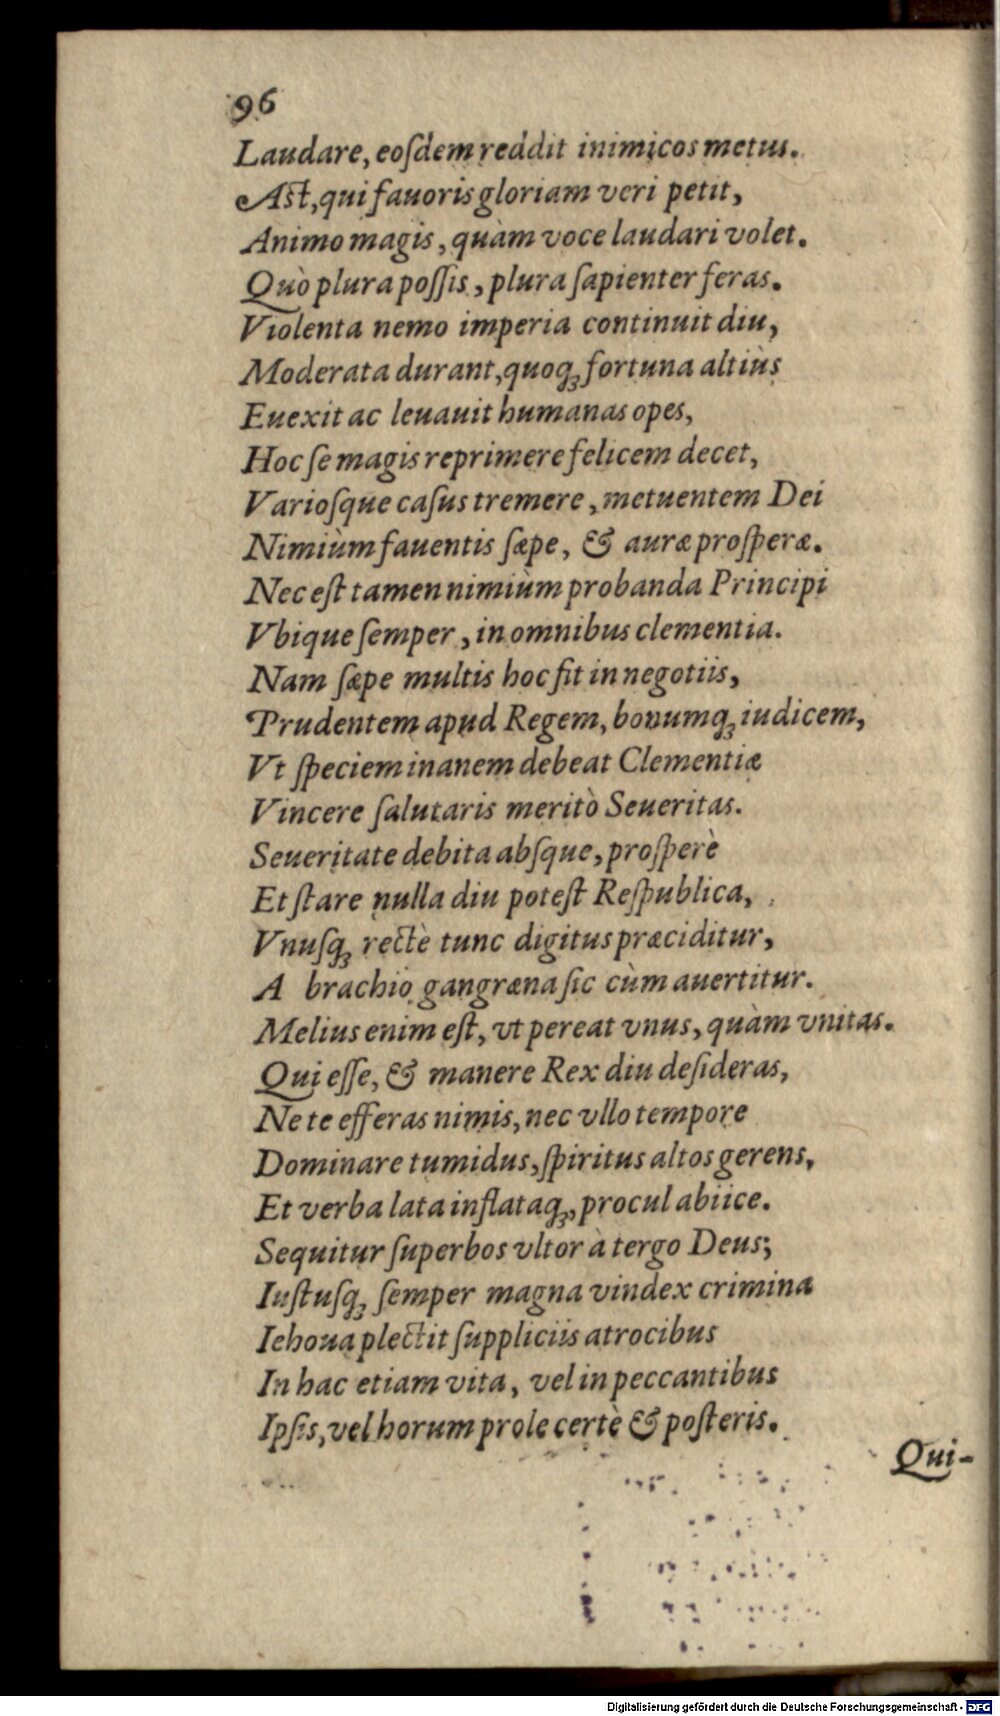 96
Laudare, eoſdem reddit inimicos metus.
Aſt, qui fauoris gloriam veri petit,
Animo magis, quàm voce laudari volet.
Quò plura poſſis, plura ſapienter feras.
Violenta nemo imperia continuit diu,
Moderata durant, quoqꝫ fortuna altiùs
Euexit ac leuauit humanas opes,
Hoc ſe magis reprimere felicem decet,
Varioſque caſus tremere, metuentem Dei
Nimiùm fauentis ſæpe, & auræ proſperæ.
Nec eſt tamen nimiùm probanda Principi
Vbique ſemper, in omnibus clementia.
Nam ſæpe multis hoc fit in negotiis,
Prudentem apud Regem, bonumqꝫ iudicem,
Vt ſpeciem inanem debeat Clementiæ
Vincere ſalutaris meritò Seueritas.
Seueritate debita abſque, proſperè
Et ſtare nulla diu poteſt Reſpublica,
Vnuſqꝫ rectè tunc digitus præciditur,
A brachio gangræna ſic cùm auertitur.
Melius enim eſt, vt pereat vnus, quàm vnitas.
Qui eſſe, & manere Rex diu deſideras,
Ne te efferas nimis, nec vllo tempore
Dominare tumidus, ſpiritus altos gerens,
Et verba lata inflataqꝫ, procul abiice.
Sequitur ſuperbos vltor à tergo Deus;
Iuſtuſqꝫ ſemper magna vindex crimina
Iehoua plectit ſuppliciis atrocibus
In hac etiam vita, vel in peccantibus
Ipſis, vel horum prole certè & poſteris.
Qui-
Digitalisierung gefördert durch die Deutsche Forschungsgemeinschaft - DFG